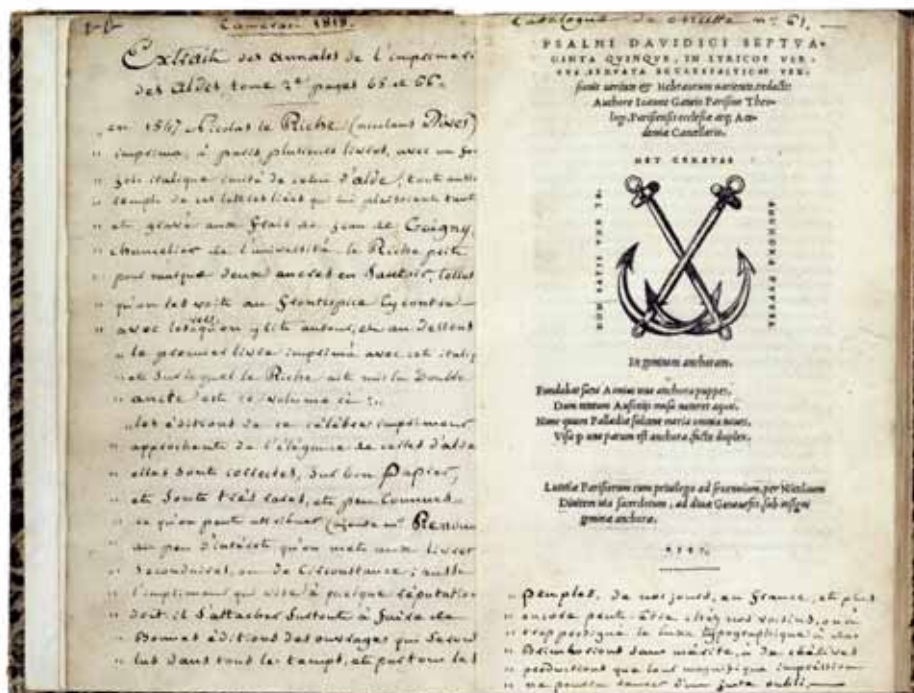 Cameran 1819.
Extrait des annales de l'imprimeri
des Aldes, tome 2e pages 65 et 66.
„ en 1547 Nicolas le Riche (nicolaus Dives)
„ imprima, à paris, plusieurs livres, avec un
„ italique imité de celui d'alde; tout
„ de ces lettres liées qui lui plaisoient tant
„ et gravé aux frais de jean de Gaigny,
„ chancelier de l'université. le Riche prit
„ pour marque deux ancres en Sautoir, telles
„ qu'on les voit au frontispice cy contre
„ avec les vers qu'on y lit autour, et au dessous
„ le premier livre imprimé avec cet italiq
„ et Sur lequel le Riche ait mis la Double
„ ancre est ce volume ci :,,
„ les éditions de ce célèbre imprimeur
„ approchent de l'élégance de celles d'alde
„ elles sont collectes, Sur bon Papier,
„ et Sont très rares, et peu Connues
„ ce qu'on peut attribuer (ajoute mr. Renoua
„ au peu d'intérêt qu'on met aux livres
„ Secondaires, ou de Circonstance; aussi
„ l'imprimeur qui vise à quelque réputation
„ doit il S'attacher Surtout à faire de
„ Bonnes éditions des ouvrages qui Seront
„ lus dans tous les temps, et par tous les
Catalogue de no 61.
PSALMI DAVIDICI SEPTVA-
GINTA QVINQVE, IN LYRICOS VER-
SVS, SERVATA ECCLESIASTICAE VER-
sionis veritate & Hebraeorum varietate, redacti:
Authore Ioanne Ganeio Parisino Theo-
logo, Parisiensis ecclesiæ atq; Aca-
demiæ Cancellario.
NON SATIS VNA
ANCHORA PVPPI
In geminam anchoram.
Fundabat sacræ Annias una anchora puppes,
Dum tentum Ausonijs musa maneret aquis.
Nunc quum Palladiæ sulcent maria omnia naues,
Visa que una parum est anchora, facta duplex.
Lutetiæ Parisiorum cum priuilegio ad sexennium, per Nicolaum
Diuitem via sacerdotum, ad diuæ Genouefes, sub insigni
geminæ anchoræ.
1547.
„ Peuples. de nos jours, en France, et plus
„ encore peut-être chez nos voisins, on a
„ trop prodigué le luxe typographique à des
„ Brimborions sans mérite, à de chétives
„ productions que leur magnifique impression
„ ne pourra sauver d'un juste oubli,